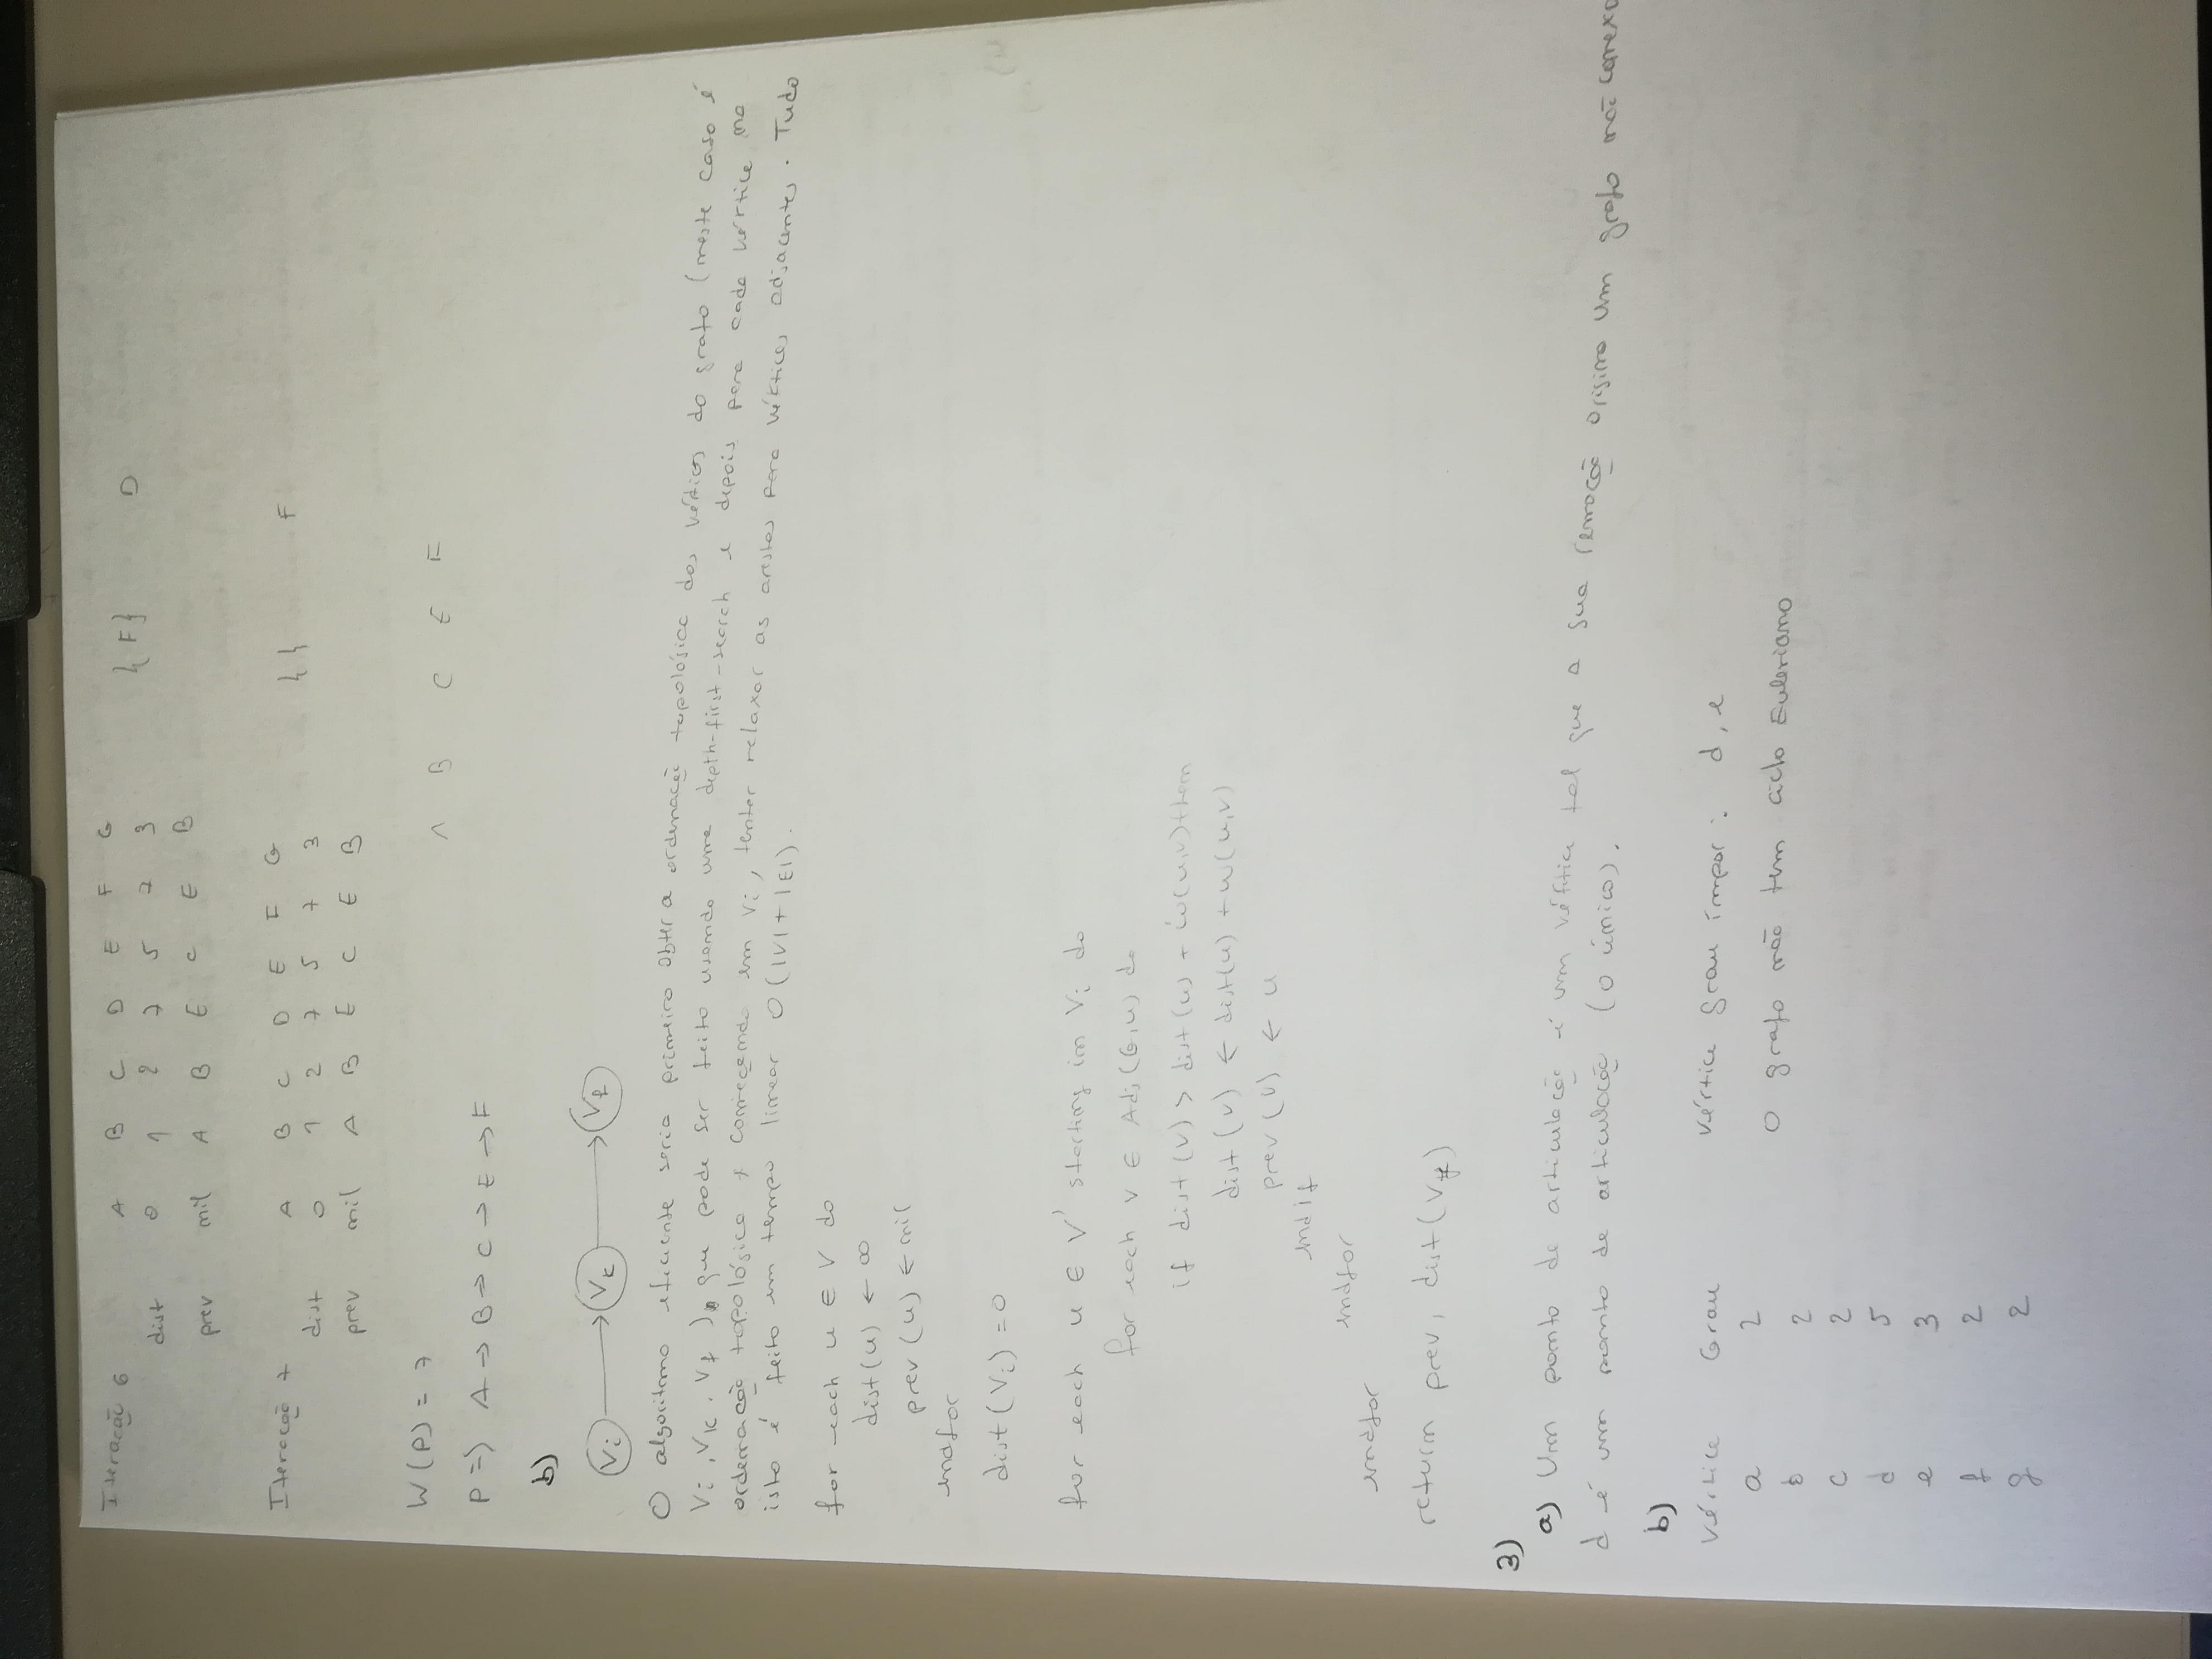 Iteração 6 A B C D E F G {F} D
dist 0 1 2 7 5 7 3
prev nil A B E C E B
Iteração 7 A B C D E F G { } F
dist 0 1 2 7 5 7 3
prev nil A B E C E B
W(P) = 7
A B C E F
P => A → B → C → E → F
b)
Vi Vk Vf
O algoritmo eficiente seria primeiro obter a ordenação topológica dos vértices do grafo (neste caso é
Vi, Vk, Vf), que pode ser feito usando uma depth-first-search e depois para cada vértice na
ordenação topológica, começando em Vi, tentar relaxar as arestas para vértices adjacentes. Tudo
isto é feito em tempo linear O(|V| + |E|).
for each u ∈ V do
dist(u) ← ∞
prev(u) ← nil
endfor
dist(Vi) = 0
for each u ∈ V' starting in Vi do
for each v ∈ Adj(G,u) do
if dist(v) > dist(u) + w(u,v) then
dist(v) ← dist(u) + w(u,v)
prev(v) ← u
endif
endfor
endfor
return prev, dist(Vf)
3)
a) Um ponto de articulação é um vértice tal que a sua remoção origina um grafo não conexo
d é um ponto de articulação (o único).
b)
Vértice Grau Vértice grau ímpar: d, e
a 2
O grafo não tem ciclo Euleriano
b 2
c 2
d 5
e 3
f 2
g 2